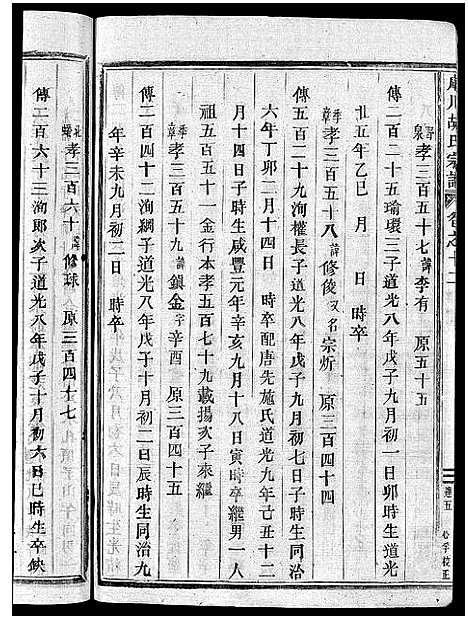 胡氏宗譜 卷之十二
孝三百五十七諱李有 原五十五
傳二百五十五瑜環三子道光八年戊子九月初一日卯時生道光
廿五年乙巳 月 日 時卒
孝三百五十八諱修後又名宗炘 原三百四十四
傳五百二十九洵權長子道光八年戊子九月初七日子時生同治
六年丁卯二月十四日 時卒配唐先施氏道光九年己丑十二
月十四日子時生咸豐元年辛亥九月十八日寅時卒繼男一人
祖五百五十一金行本孝五百七十九載揚次子來繼
孝三百五十九諱鎖金字辛酉 原三百四十五
傳二百四十二洵綱子道光八年戊子十月初二日辰時生同治九
年辛未九月初二日 時卒
孝三百六十諱修球 原三百四十七
傳二百六十三洵郎次子道光八年戊子十月初六日巳時生卒缺